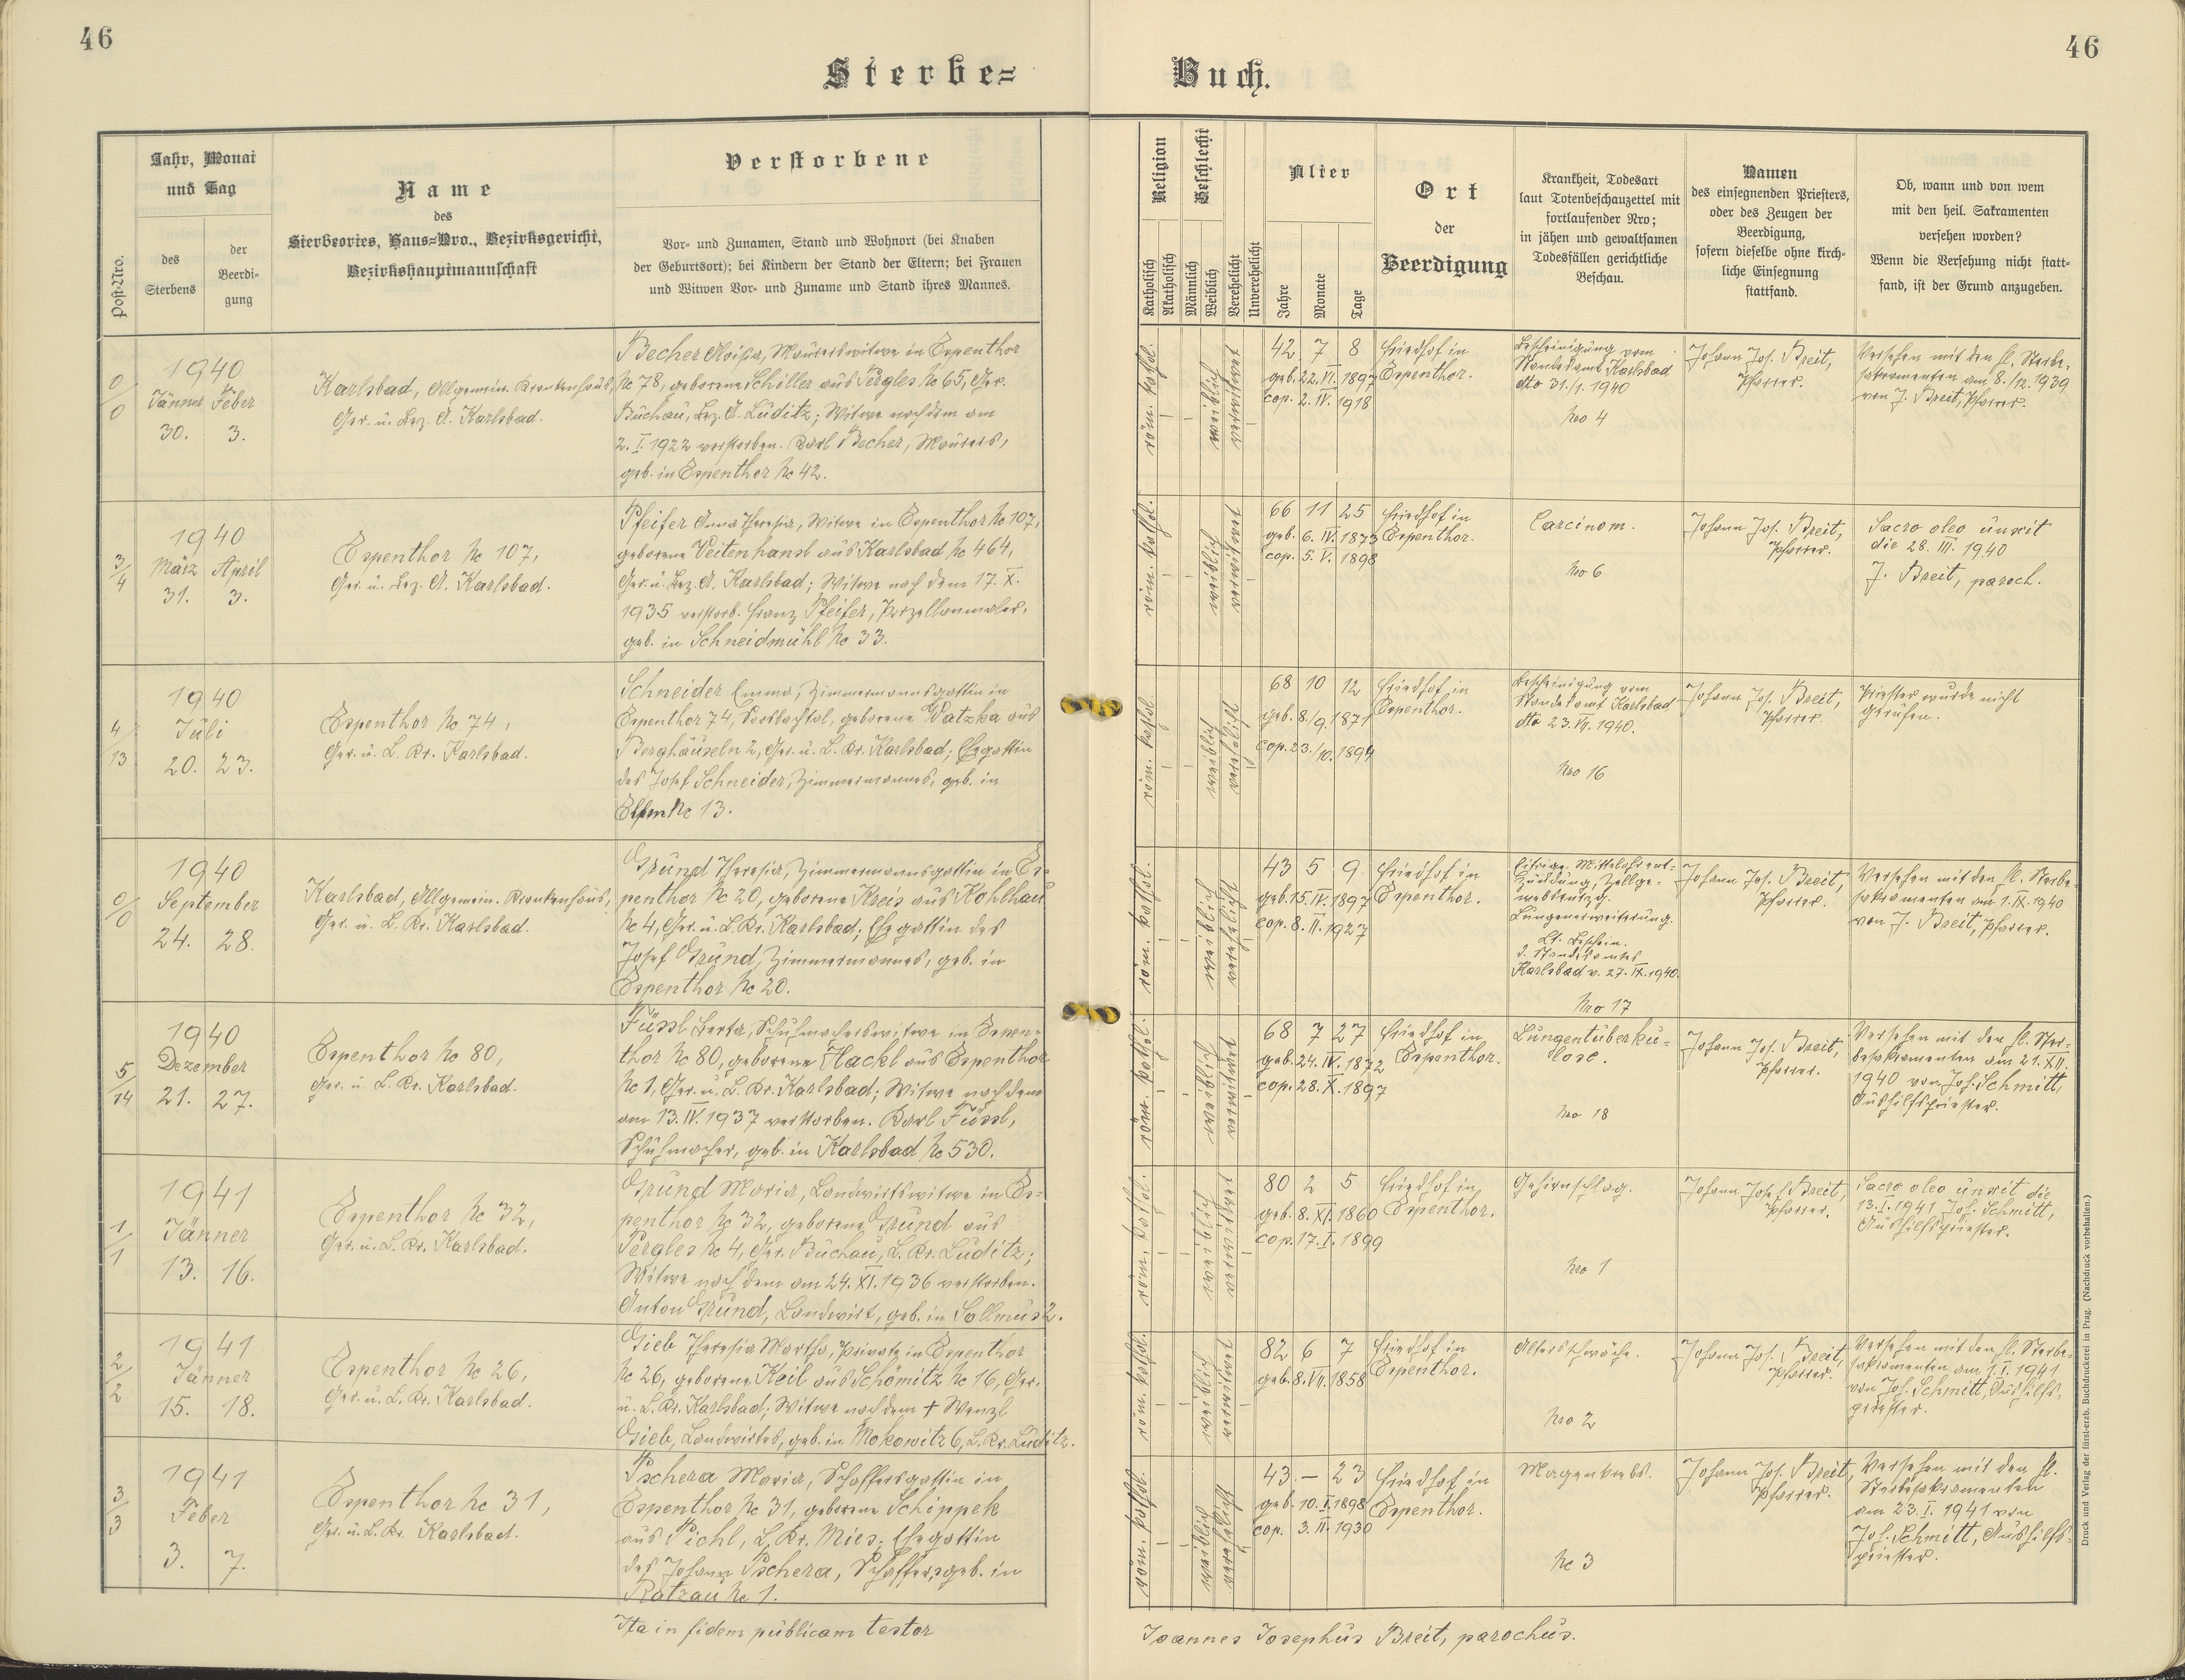 46
46
Sterbe=
Buch.
Post-Nro.
Jahr, Monat
und Tag
des
Sterbens
der
Beerdi-
gung
Name
des
Sterbeortes, Haus=Nro., Bezirksgericht,
Bezirkshauptmannschaft
Verstorbene
Vor- und Zunamen, Stand und Wohnort (bei Knaben
der Geburtsort); bei Kindern der Stand der Eltern; bei Frauen
und Witwen Vor- und Zuname und Stand ihres Mannes.
Religion
Katholisch
Akatholisch
Geschlecht
Männlich
Weiblich
Verehelicht
Unverehelicht
Alter
Jahre
Monate
Tage
Ort
der
Beerdigung
Krankheit, Todesart
laut Totenbeschauzettel mit
fortlaufender Nro;
in jähen und gewaltsamen
Todesfällen gerichtliche
Beschau.
Namen
des einsegnenden Priesters,
oder des Zeugen der
Beerdigung,
sofern dieselbe ohne kirch-
liche Einsegnung
stattfand.
Ob, wann und von wem
mit den heil. Sakramenten
versehen worden?
Wenn die Versehung nicht statt-
fand, ist der Grund anzugeben.
0/0
1940
Jänner Feber
30. 3.
Karlsbad, Allgemein. Krankenhaus,
Ger. u. Bez. A. Karlsbad.
Becher Aloisia, Maurerswitwe in Espenthor
Nc 78, geborene Schiller aus Pergles Nc 65, Ger.
Buchau, Bez. A. Luditz; Witwe nach dem am
2. I. 1922 verstorben. Karl Becher, Maurers,
geb. in Espenthor Nc 42.
röm. kathol.
weiblich
verwitwet
42 7 8
geb. 22. VI. 1897
cop. 2. IV. 1918
Friedhof in
Espenthor.
Bescheinigung vom
Standesamt Karlsbad
dto 31./1. 1940
Nro 4
Johann Jos. Breit,
Pfarrer.
Versehen mit den hl. Sterbe-
sakramenten am 8./12. 1939
von J. Breit, Pfarrer.
3/4
1940
März April
31. 3.
Espenthor Nc 107,
Ger. u. Bez. A. Karlsbad.
Pfeifer Anna Theresia, Witwe in Espenthor Nc 107,
geborene Veitenhansl aus Karlsbad Nc 464,
Ger. u. Bez. A. Karlsbad; Witwe nach dem 17. X.
1935 verstorb. Franz Pfeifer, Porzellanmaler,
geb. in Schneidmühl Nc 33.
röm. kathol.
weiblich
verwitwet
66 11 25
geb. 6. IV. 1873
cop. 5. V. 1898
Friedhof in
Espenthor.
Carcinom.
Nro 6
Johann Jos. Breit,
Pfarrer.
Sacro oleo unxit
die 28. III. 1940
J. Breit, paroch.
4/13
1940
Juli
20. 23.
Espenthor Nc 74,
Ger. u. L. Kr. Karlsbad.
Schneider Emma, Zimmermannsgattin in
Espenthor 74, geborene Watzka aus
Berghäuseln 2, Ger. u. L. Kr. Karlsbad; Ehegattin
des Josef Schneider, Zimmermannes, geb. in
Elfen Nc 13.
röm. kathol.
weiblich
verehelicht
68 10 12
geb. 8./9. 1871
cop. 23./10. 1894
Friedhof in
Espenthor.
Bescheinigung vom
Standesamt Karlsbad
dto 23. VII. 1940.
Nro 16
Johann Jos. Breit,
Pfarrer.
Priester wurde nicht
gerufen.
0/0
1940
September
24. 28.
Karlsbad, Allgemein. Krankenhaus,
Ger. u. L. Kr. Karlsbad.
Gründ Theresia, Zimmermannsgattin in Es-
penthor Nc 20, geborene Kreis aus Kohlhau
Nc 4, Ger. u. L. Kr. Karlsbad; Ehegattin des
Josef Gründ, Zimmermannes, geb. in
Espenthor Nc 20.
röm. kathol.
weiblich
verehelicht
43 5 9
geb. 15. IV. 1897
cop. 8. II. 1927
Friedhof in
Espenthor.
Eitrige Mittelohrent-
zündung, Zellge-
websentzg.
Lungenerweiterung.
Lt. Beschein.
d. Standesamtes
Karlsbad v. 27. IX. 1940.
Nro 17
Johann Jos. Breit,
Pfarrer.
Versehen mit den hl. Sterbe-
sakramenten am 1. IX. 1940
von J. Breit, Pfarrer.
5/14
1940
Dezember
21. 27.
Espenthor Nc 80,
Ger. u. L. Kr. Karlsbad.
Füssl Berta, Schuhmacherswitwe in Espen-
thor Nc 80, geborene Hackl aus Espenthor
Nc 1, Ger. u. L. Kr. Karlsbad; Witwe nach dem
am 13. IV. 1937 verstorben. Karl Füssl,
Schuhmacher, geb. in Karlsbad Nc 530.
röm. kathol.
weiblich
verwitwet
68 7 27
geb. 24. IV. 1872
cop. 28. X. 1897
Friedhof in
Espenthor.
Lungentuberku-
lose.
Nro 18
Johann Jos. Breit,
Pfarrer.
Versehen mit den hl. Ster-
besakramenten am 21. XII.
1940 von Jos. Schmitt,
Aushilfspriester.
1/1
1941
Jänner
13. 16.
Espenthor Nc 32,
Ger. u. L. Kr. Karlsbad.
Gründ Maria, Landwirtswitwe in Es-
penthor Nc 32, geborene Gründ aus
Pergles Nc 4, Ger. Buchau, L. Kr. Luditz;
Witwe nach dem am 24. XI. 1936 verstorben.
Anton Gründ, Landwirt, geb. in Sollmus 2.
röm. kathol.
weiblich
verwitwet
80 2 5
geb. 8. XI. 1860
cop. 17. I. 1899
Friedhof in
Espenthor.
Gehirnschlag.
Nro 1
Johann Josef Breit,
Pfarrer.
Sacro oleo unxit die
13. I. 1941 Jos. Schmitt,
Aushilfspriester.
2/2
1941
Jänner
15. 18.
Espenthor Nc 26,
Ger. u. L. Kr. Karlsbad.
Gieb Theresia Martha, Private in Espenthor
Nc 26, geborene Keil aus Schömitz Nc 16, Ger.
u. L. Kr. Karlsbad; Witwe nach dem † Wenzl
Gieb, Landwirtes, geb. in Mokowitz 6, L. Kr. Luditz.
röm. kathol.
weiblich
verwitwet
82 6 7
geb. 8. VII. 1858
Friedhof in
Espenthor.
Altersschwäche.
Nro 2
Johann Jos. Breit,
Pfarrer.
Versehen mit den hl. Sterbe-
sakramenten am 1. I. 1941
von Jos. Schmitt, Aushilfs-
priester.
3/3
1941
Feber
3. 7.
Espenthor Nc 31,
Ger. u. L. Kr. Karlsbad.
Pschera Maria, Schaffersgattin in
Espenthor Nc 31, geborene Schippek
aus Pichl, L. Kr. Mies; Ehegattin
des Johann Pschera, Schaffers, geb. in
Ratzau Nc 1.
röm. kathol.
weiblich
verehelicht
43 — 23
geb. 10. I. 1898
cop. 3. II. 1930
Friedhof in
Espenthor.
Magenkrebs.
Nc 3
Johann Jos. Breit,
Pfarrer.
Versehen mit den hl.
Sterbesakramenten
am 23. I. 1941 von
Jos. Schmitt, Aushilfs-
priester.
Ita in fidem publicam testor
Joannes Josephus Breit, parochus.
Druck und Verlag der fürst-erzb. Buchdruckerei in Prag. (Nachdruck vorbehalten.)